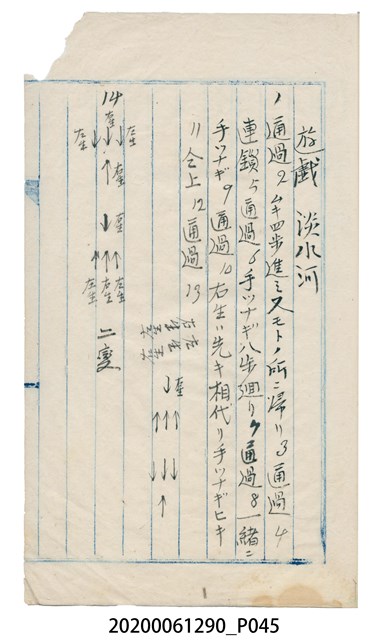 遊戯 淡水河
1 通過 2 ムキ四歩進ミ又モトノ所ニ帰リ 3 通過 4
連鎖 5 通過 6 手ツナギ八歩廻リ 7 通過 8 一緒ニ
手ツナギ 9 通過 10 右生ハ先キ相代リ手ツナギヒキ
11 仝上 12 通過 13
14
左生
左生
左生
右生
左生
二変
20200061290_P045